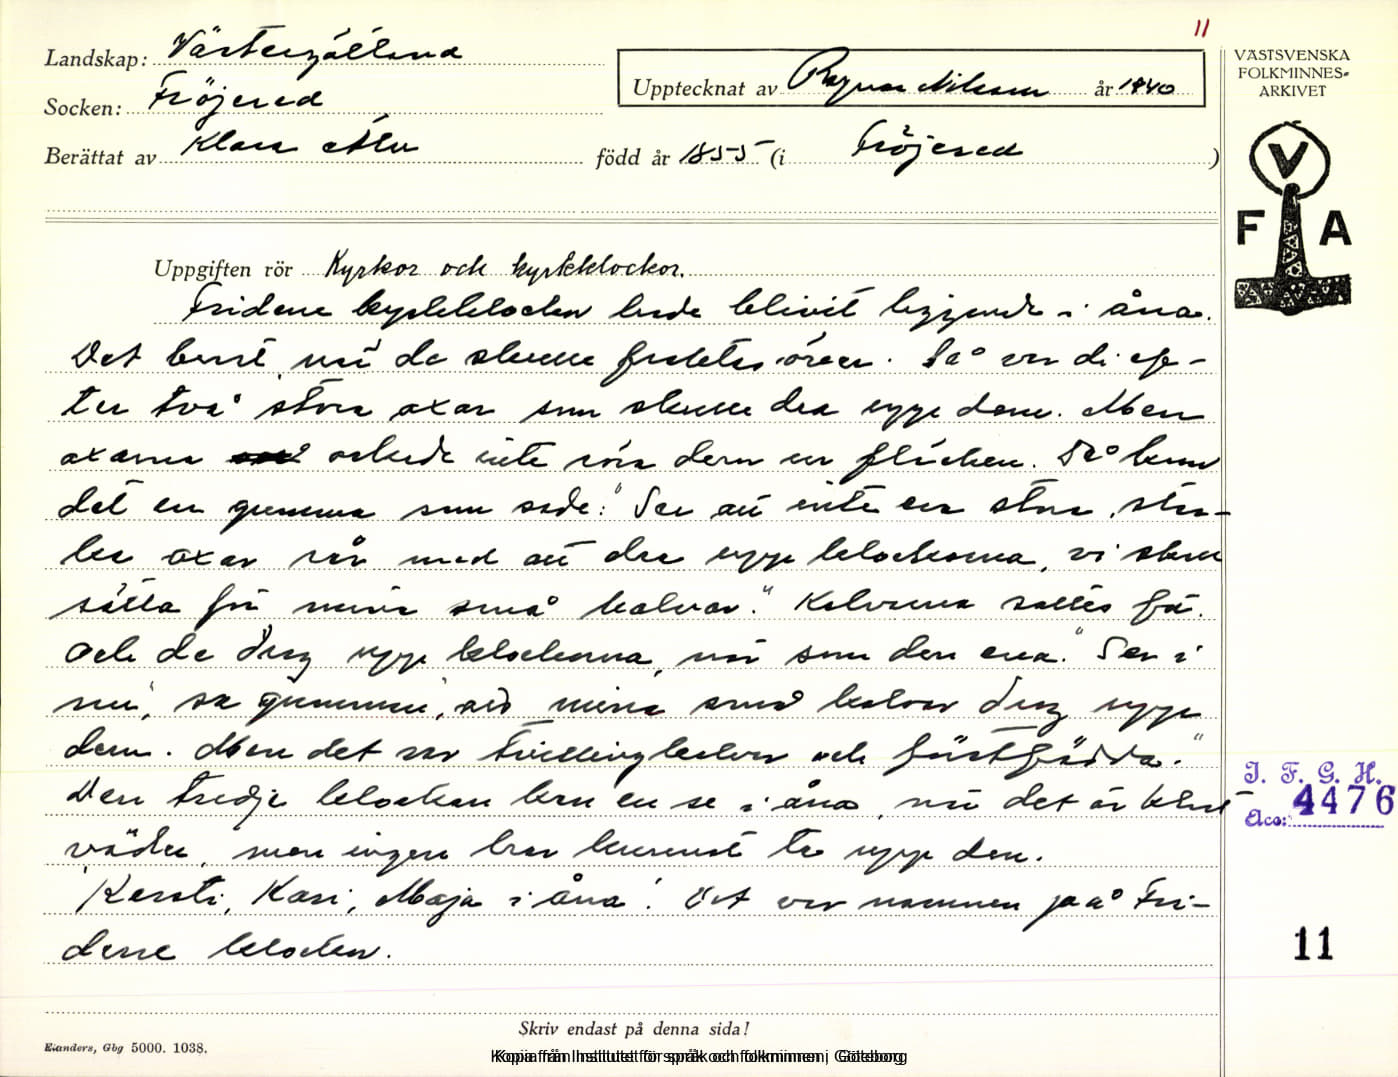 11
Landskap: Västergötland
Socken: Fröjered
Berättat av Klara Alm
Upptecknat av Ragnar Nilsson år 1940
född år 1855 (i Fröjered )
VÄSTSVENSKA
FOLKMINNES-
ARKIVET
V
F A
Uppgiften rör Kyrkor och kyrkklockor.
Fridene kyrkklockor hade blivit liggande i åna.
Det hent när de skulle fraktas över. Så var di ef-
ter två stora oxar som skulle dra upp dem. Men
oxarna orkade inte röra dem ur fläcken. Då kom
det en gumma som sade: "Ser att inte era stora, star-
ka oxar rår med att dra upp klockorna, vi skall
sätta för mina små kalvar." Kalvarna sattes för.
Och de drog upp klockorna, när som den ena. "Ser i
nu", sa gumman, "att mina små kalvar drog upp
dem. Men det var tvillingkalvar och förstfödda."
Den tredje klockan kan en se i åna, när det är klart
väder, men ingen har kunnat ta upp den.
"Kersti, Kari, Maja i åna". Det var namnen på Fri-
dene klockor.
I. F. G. H.
Acc: 4476
11
Skriv endast på denna sida!
Elanders, Gbg 5000. 1038.
Kopia från Institutet för språk och folkminnen, Göteborg